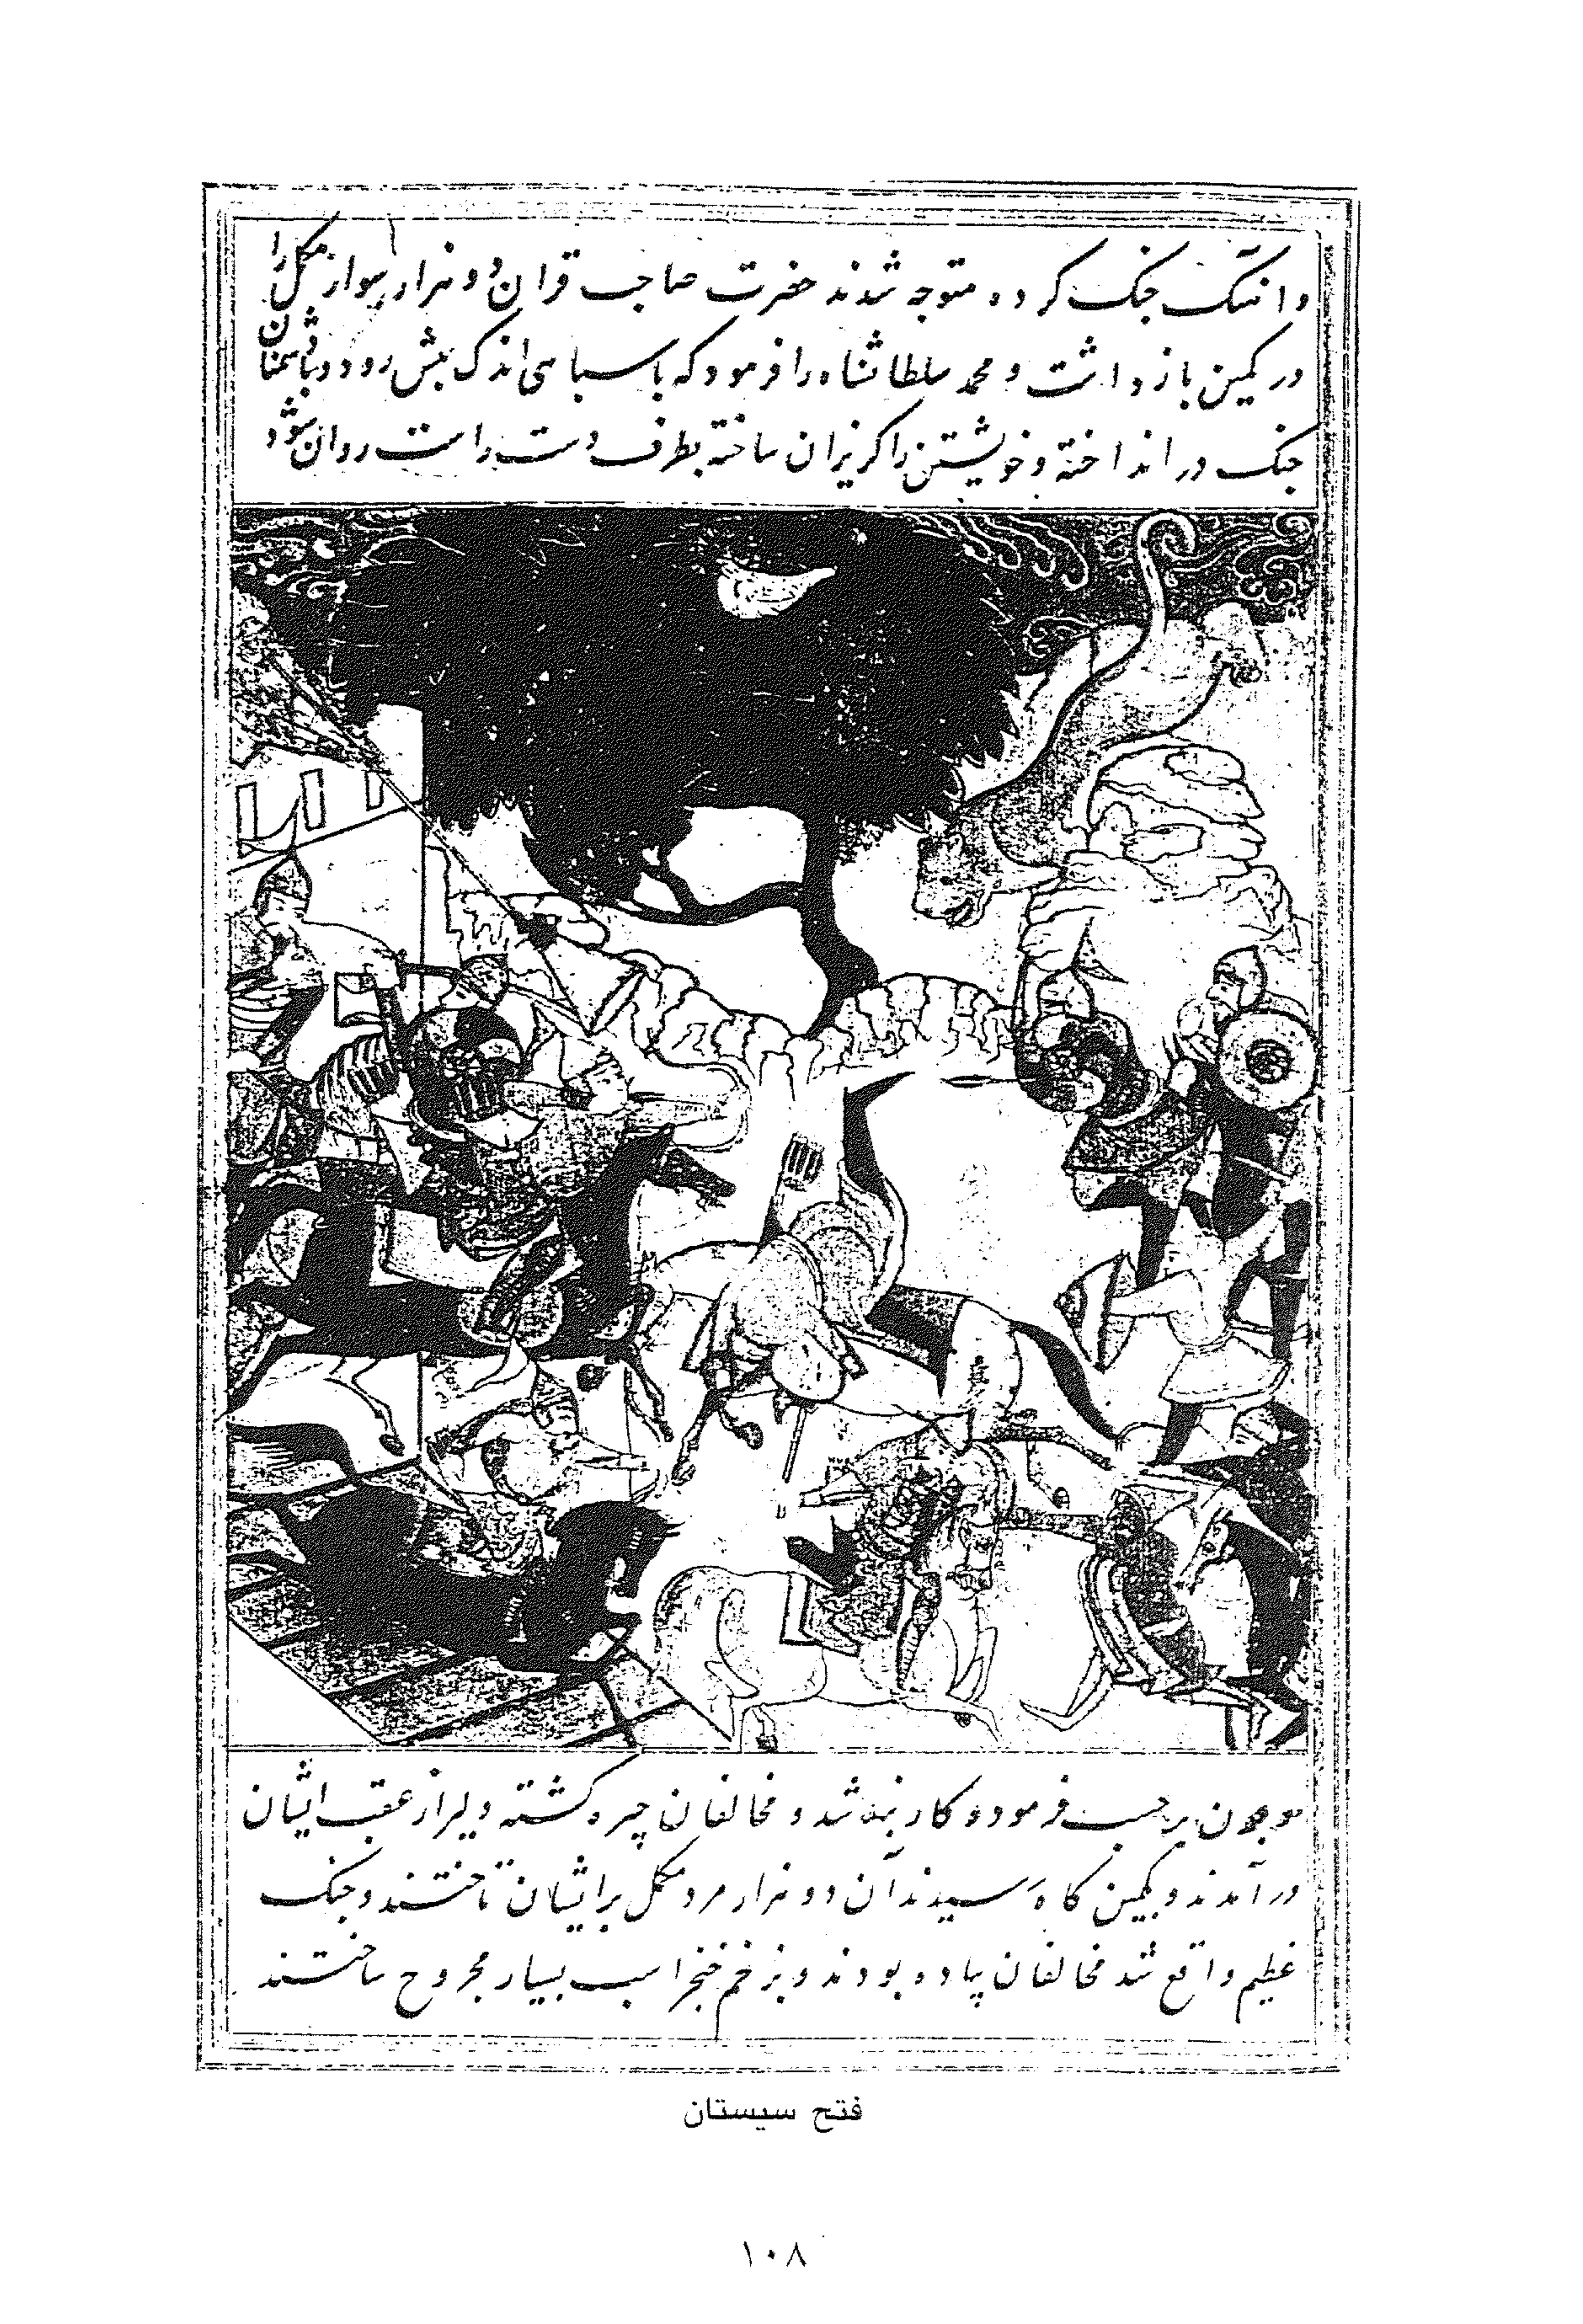 و آهنگ جنک کرده متوجه شدند حضرت صاحب قران دو هزار سوار مکمل را
در کمین باز داشت و محمد سلطانشاه را فرمود که با سپاهی اندک پیش رود و با دشمنان
جنک در انداخته و خویشتن را کریزان ساخته بطرف دست راست روان شود
برحسب فرموده کار بند شد و مخالفان چیره کشته دلیر از عقب ایشان
در آمدند و بکمین کاه رسیدند آن دو هزار مرد مکمل بر ایشان تاختند و جنک
عظیم واقع شد مخالفان پیاده بودند و بزخم خنجر اسب بسیار مجروح ساختند
فتح سیستان
۱۰۸